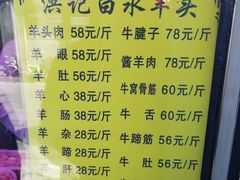 洪记白水羊头
羊头肉 58元/斤 牛腱子 78元/斤
羊 眼 58元/斤 酱羊肉 78元/斤
羊 肚 56元/斤 牛窝骨筋 60元/斤
羊 心 38元/斤 牛 舌 60元/斤
羊 肠 38元/斤 牛蹄筋 56元/斤
羊 杂 28元/斤 牛 肚 56元/斤
羊 蹄 28元/斤
羊 肝 28元/斤